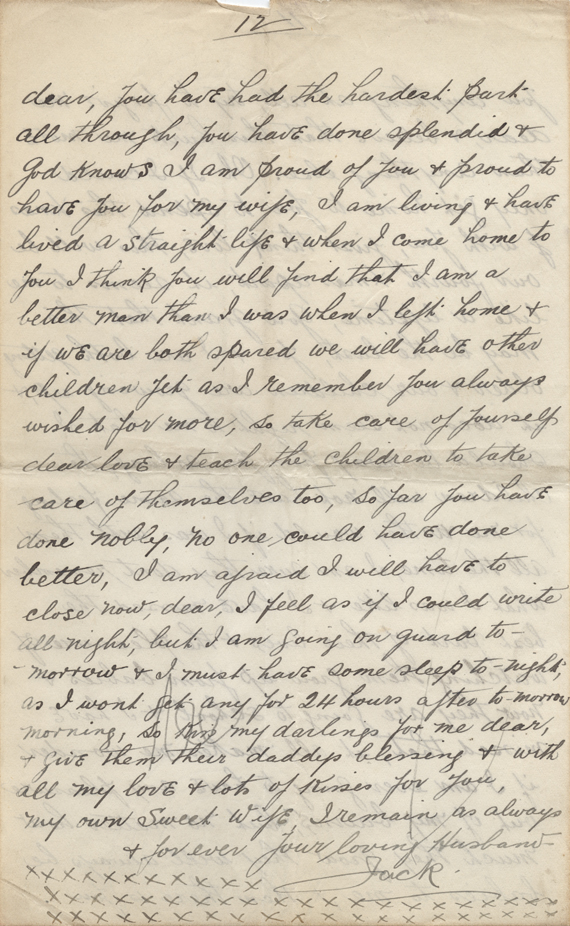 12
dear, you have had the hardest part
all through, you have done splendid &
God knows I am proud of you & proud to
have you for my wife, I am living & have
lived a straight life & when I come home to
you I think you will find that I am a
better man than I was when I left home &
if we are both spared we will have other
children yet as I remember you always
wished for more, so take care of yourself
dear love & teach the children to take
care of themselves too, so far you have
done nobly, no one could have done
better, I am afraid I will have to
close now, dear, I feel as if I could write
all night, but I am going on guard to-
-morrow & I must have some sleep to-night,
as I wont get any for 24 hours after to-morrow
morning, so kiss my darlings for me dear,
& give them their daddys blessing & with
all my love & lots of kisses for you,
my own sweet wife, I remain as always
& for ever your loving Husband
Jack.
x x x x x x x x x x x x x
x x x x x x x x x x x x x x x x x x x x x x x x x x x
x x x x x x x x x x x x x x x x x x x x x x x x x x